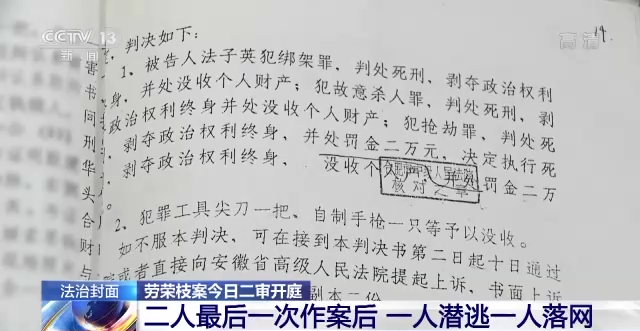 CCTV 13
新闻
高清
19
判决如下:
害 1、被告人法子英犯绑架罪,判处死刑,剥夺政治权利
书 身,并处没收个人财产;犯故意杀人罪,判处死刑,剥
同 政治权利终身并处没收个人财产;犯抢劫罪,判处死
刑 剥夺政治权利终身,并处罚金二万元,决定执行死
华 剥夺政治权利终身,没收个人财产,并处罚金二万
头
合肥市中级人民法院
核对之章
合 2、犯罪工具尖刀一把、自制手枪一只等予以没收。
财 如不服本判决,可在接到本判决书第二日起十日通过
与 院或者直接向安徽省高级人民法院提起上诉,书面上诉
副本二份
法治封面
劳荣枝案今日二审开庭
二人最后一次作案后 一人潜逃一人落网